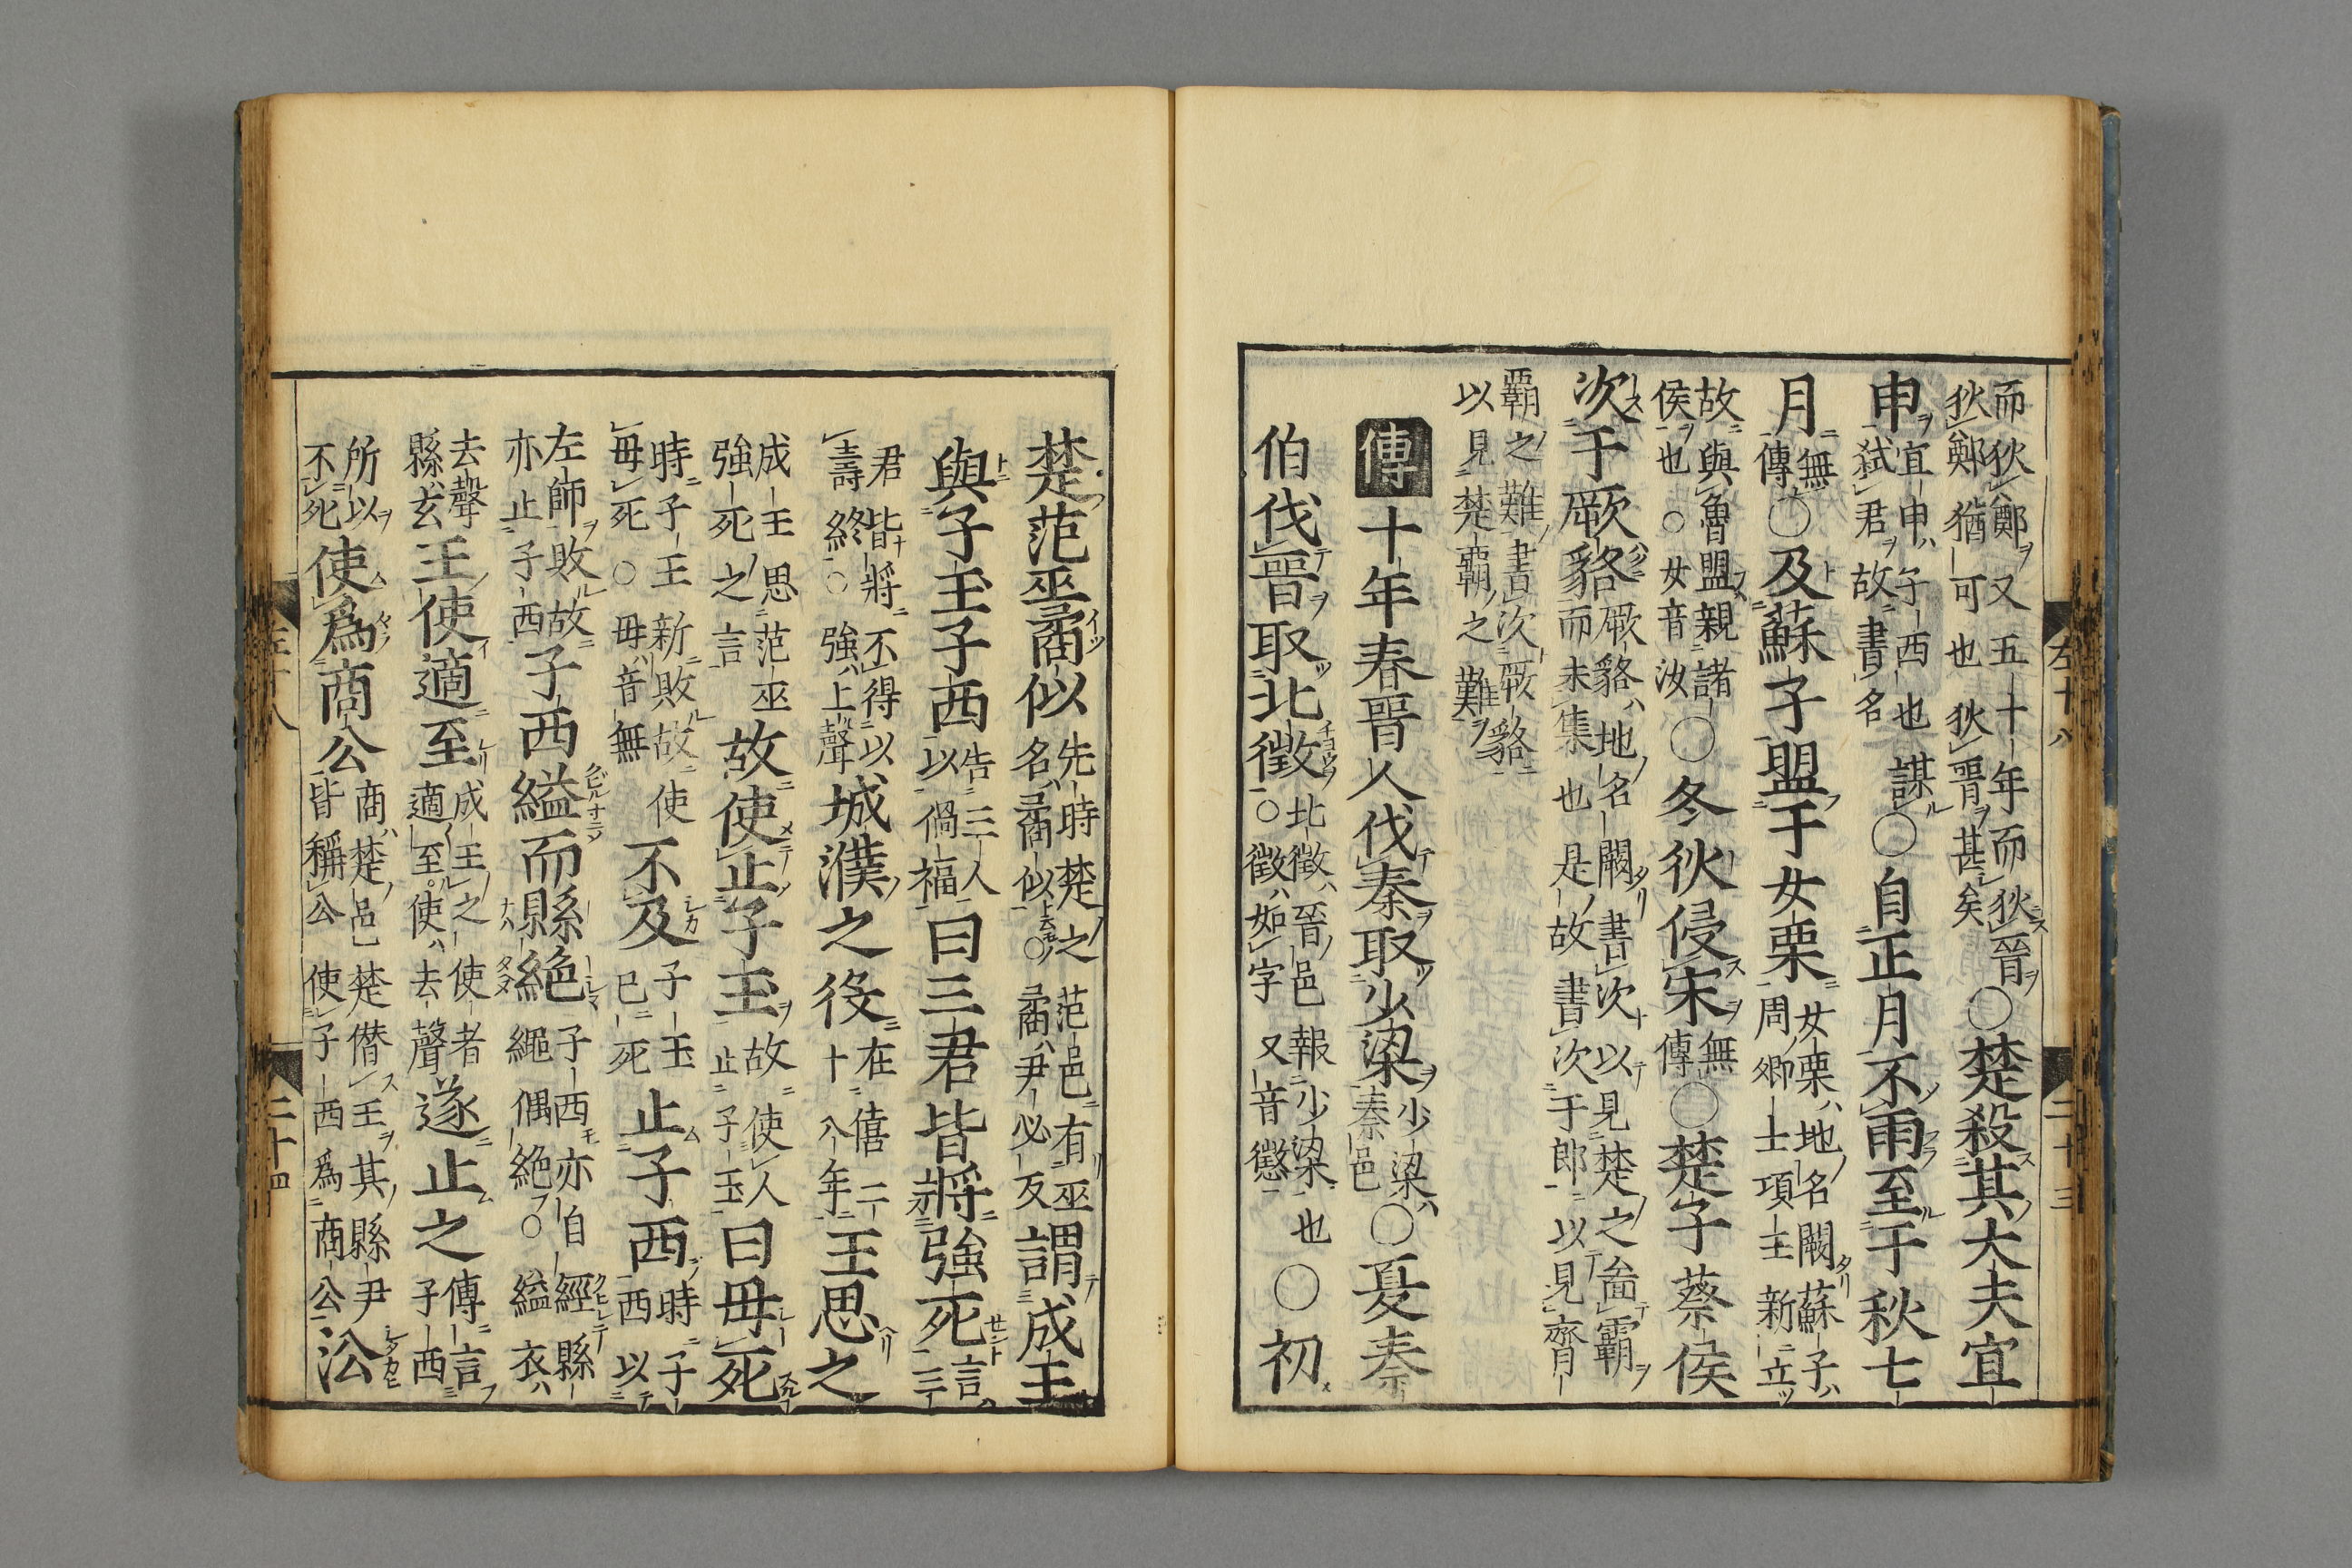 而狄鄭又五十年而狄晉○楚殺其大夫宜
狄鄭猶可也狄晉甚矣
申宜申子西也謀○自正月不雨至于秋七
弑君故書名
月無○及蘇子盟于女栗女栗地名闕蘇子
傳周卿士項王新立
故與魯盟親諸○冬狄侵宋無○楚子蔡侯
侯也○女音汝傳
次于厥貉厥貉地名闕書次以見楚之啚霸
而未集也是故書次于郎以見齊
霸之難書次厥貉
以見楚霸之難
傳十年春晉人伐秦取少梁少梁○夏秦
秦邑
伯伐晉取北徵北徵晉邑報少梁也○初
○徵如字又音懲
左十八
二十三
楚范巫矞似先時楚之范邑有巫謂成王
名矞似○矞尹必反
與子玉子西告三人曰三君皆將強死言三
以禍福
君皆將不得以城濮之役在僖二王思之
壽終○強上聲十八年
成王思范巫故使止子玉故使人曰毋死
強死之言止子玉
時子玉新敗故使不及子玉止子西時子以
毋死○毋音無已死西
左師敗故子西縊而縣絕子西亦自經縣
亦止子西繩偶絕○縊衣
去聲王使適至成王之使者遂止之傳言
縣玄適至使去聲子西
所以使爲商公商楚邑楚僭王其縣尹㳂
不死皆稱公使子西爲商公
左十八
二十四